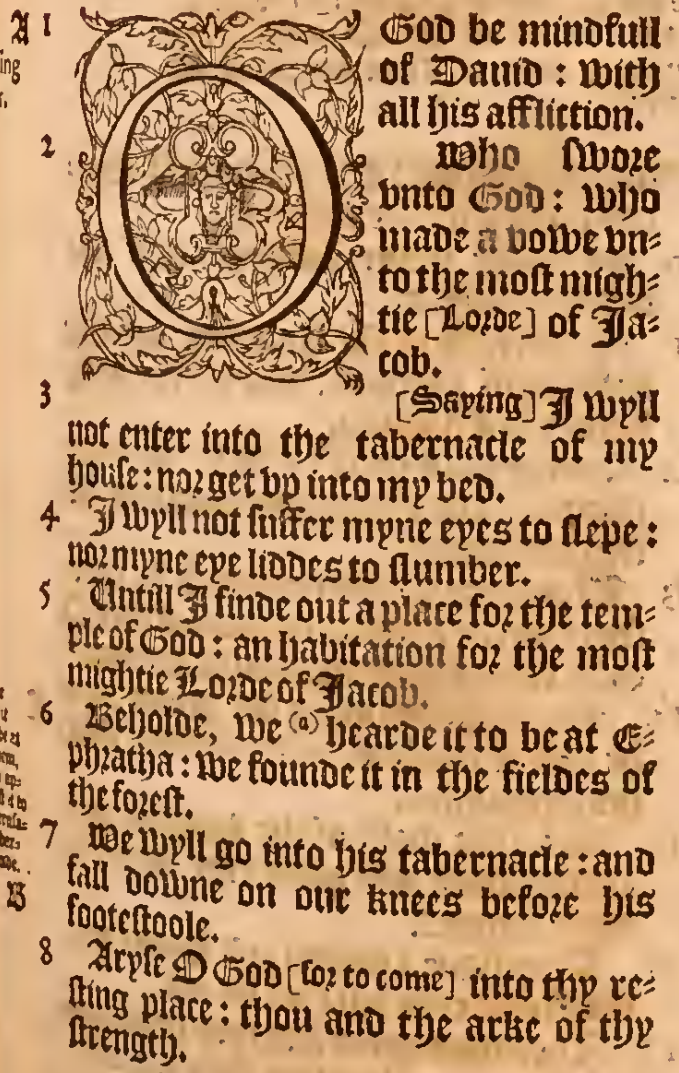 A 1 O God be mindfull
of Dauid : with
all his affliction.
2 Who swore
vnto God : who
made a vowe vn=
to the most migh=
tie [Lorde] of Ja=
cob.
3 [Saying] I wyll
not enter into the tabernacle of my
house : nor get vp into my bed.
4 I wyll not suffer myne eyes to slepe :
nor myne eye liddes to slumber.
5 Untill I finde out a place for the tem=
ple of God : an habitation for the most
mightie Lorde of Jacob.
6 Beholde, we (a) hearde it to be at E=
phratha : we founde it in the fieldes of
the forest.
7 We wyll go into his tabernacle : and
fall downe on our knees before his
B footestoole.
8 Aryse O God [for to come] into thy re=
sting place : thou and the arke of thy
strength.